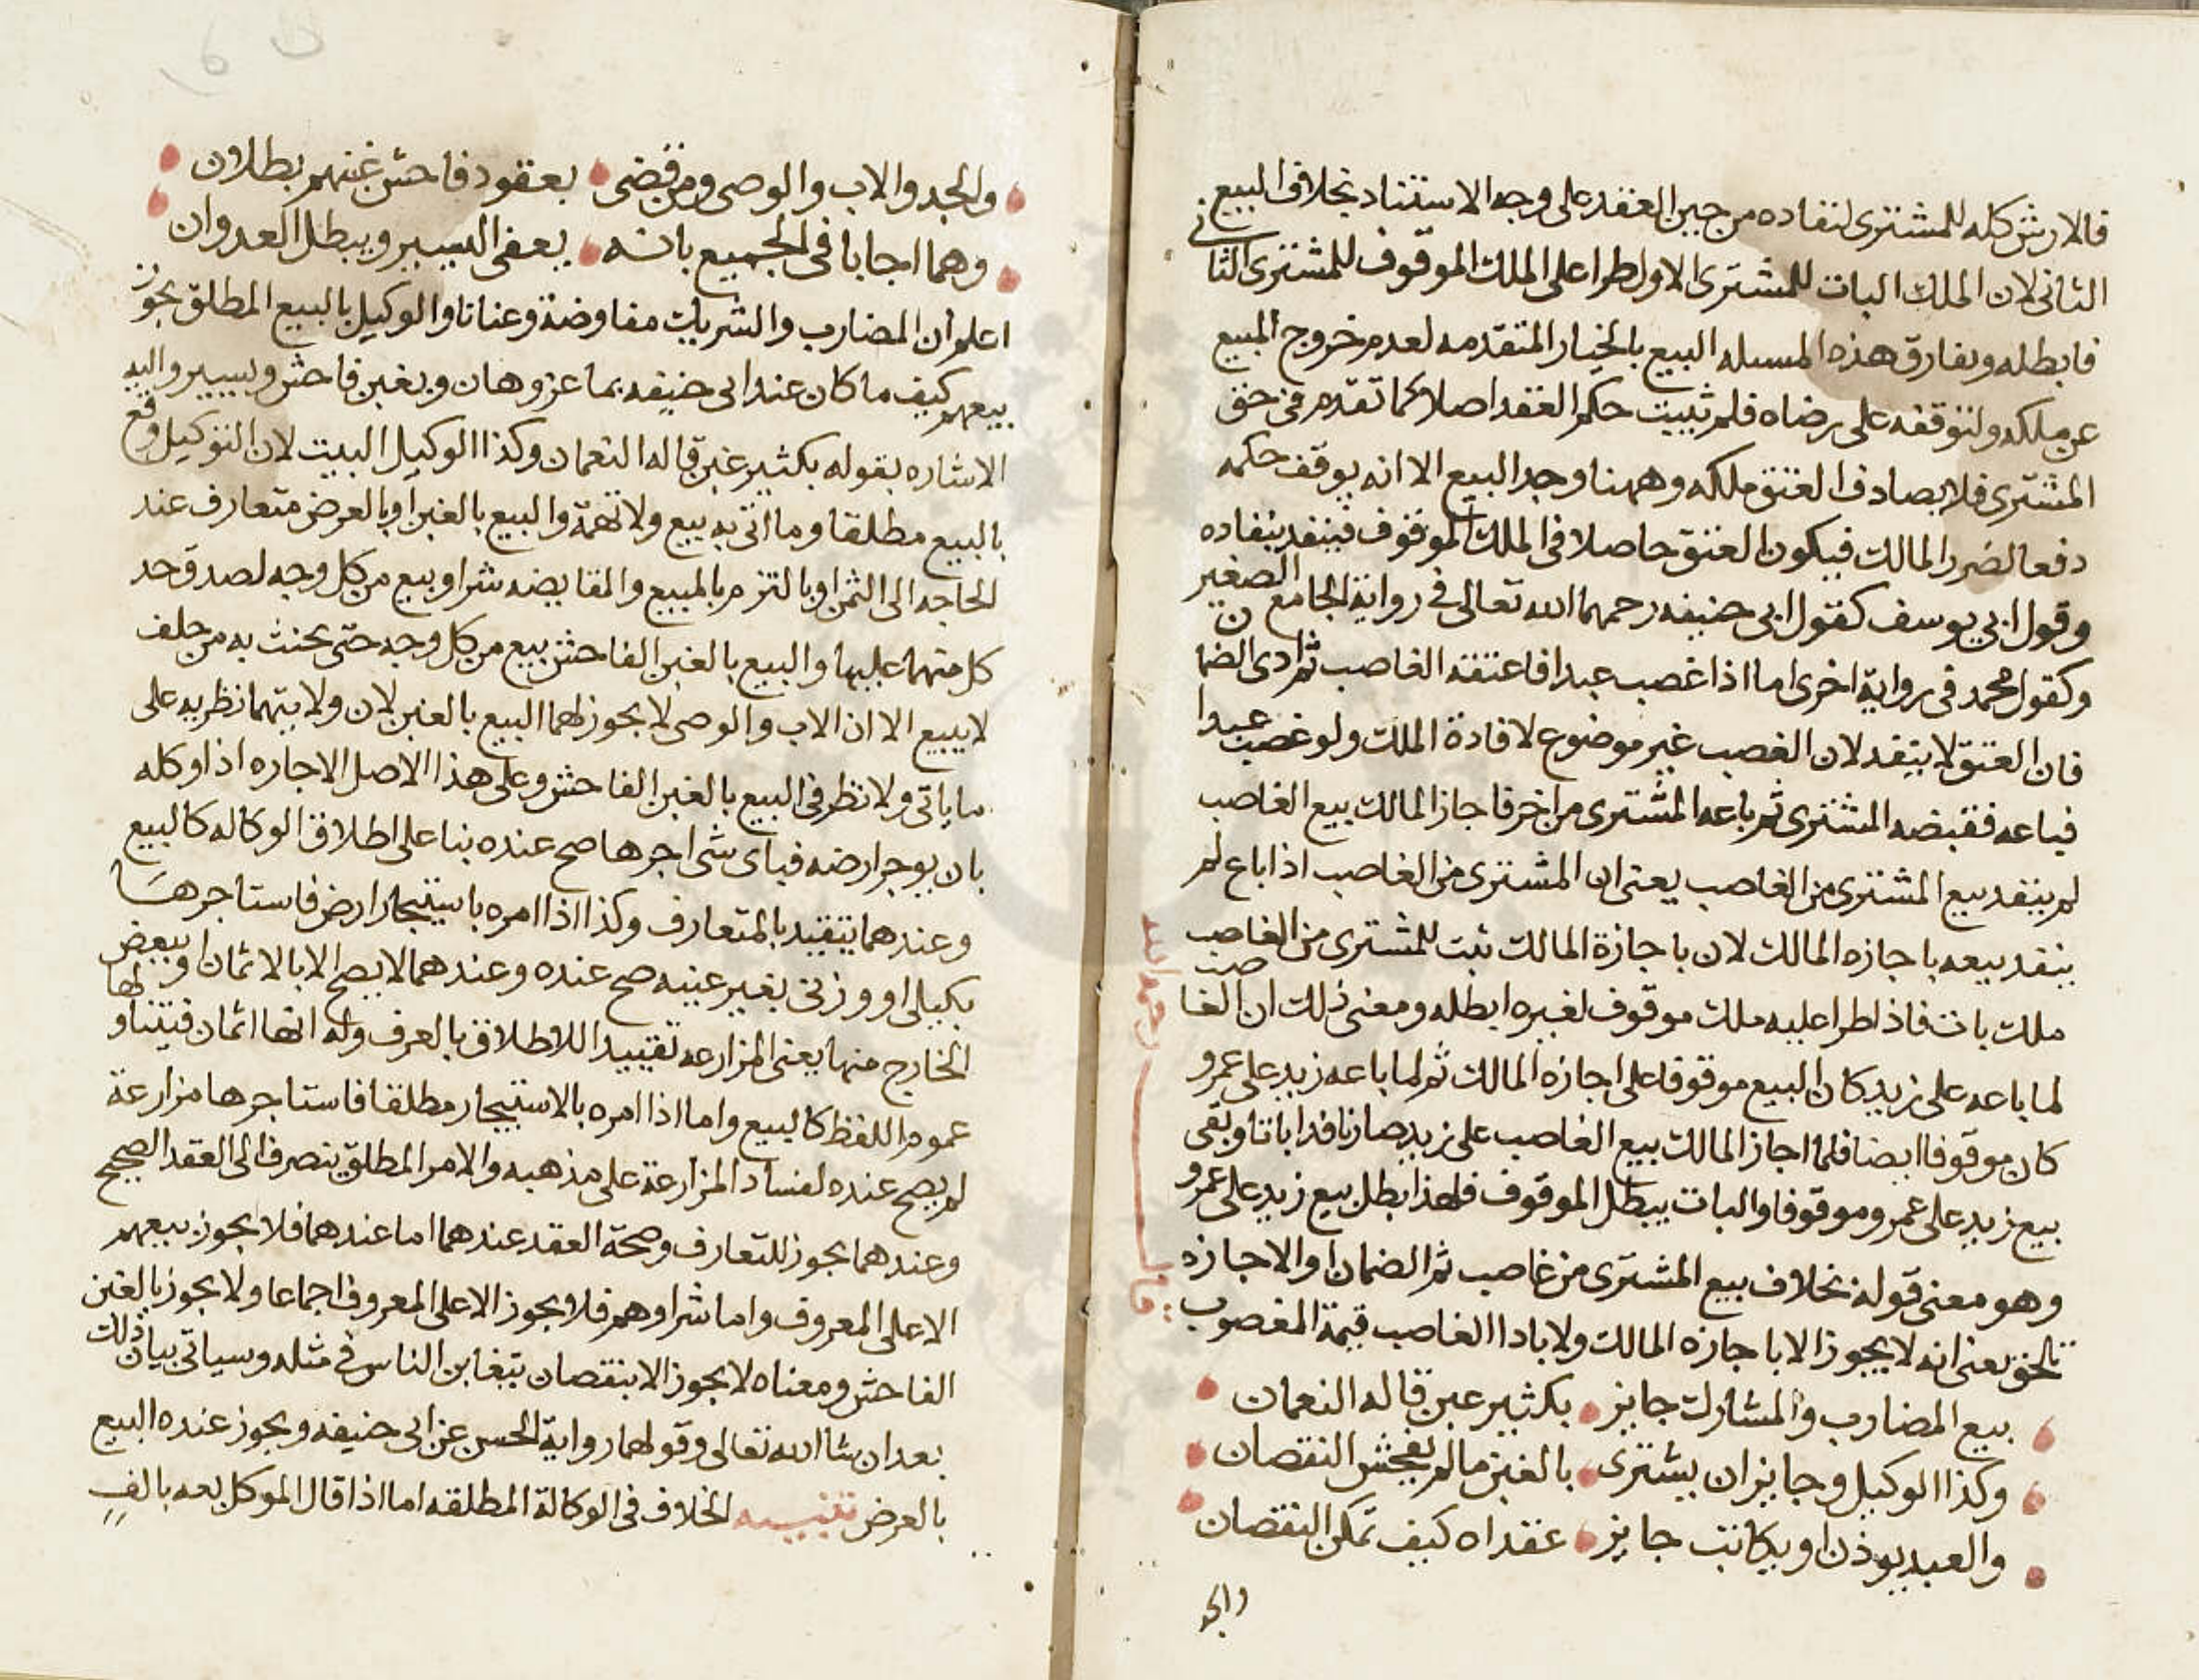 فالارش كله للمشترى لنفاده من حين العقد على وجه الاستناد بخلاف البيع
الثانى لان الملك البات للمشترى الاول طرا على الملك الموقوف للمشترى الثانى
فابطله ويفارق هذه المسله البيع بالخيار المتقدمه لعدم خروج المبيع
عن ملكه ولتوقفه على رضاه فلم يثبت حكم العقد اصلا كما تقدم فى حق
المشترى فلا يصادف العتق ملكه وههنا وجد البيع الا انه يوقف حكمه
دفعا لضرر المالك فيكون العتق حاصلا فى الملك الموقوف فينفد بنفاده
وقول ابى يوسف كقول ابى حنيفه رحمهما الله تعالى فى رواية الجامع الصغير
وكقول محمد فى رواية اخرى اما اذا غصب عبدا فاعتقه الغاصب ثم ادى الضمان
فان العتق لا ينفد لان الغصب غير موضوع لافادة الملك ولو غصب عبدا
فباعه فقبضه المشترى ثم باعه المشترى من اخر فاجاز المالك بيع الغاصب
لم ينفد بيع المشترى من الغاصب يعنى ان المشترى من الغاصب اذا باع لم
ينفد بيعه باجازه المالك لان باجازة المالك ثبت للمشترى من الغاصب
ملك بات فاذا طرا عليه ملك موقوف لغيره ابطله ومعنى ذلك ان الغاصب
لما باعه على زيد كان البيع موقوفا على اجازه المالك ثم لما باعه زيد على عمرو
كان موقوفا ايضا فلما اجاز المالك بيع الغاصب على زيد صار نافدا باتا وبقى
بيع زيد على عمرو موقوفا والبات يبطل الموقوف فلهذا بطل بيع زيد على عمرو
وهو معنى قوله بخلاف بيع المشترى من غاصب ثم الضمان او الاجازه
تلحق يعنى انه لا يجوز الا باجازه المالك ولا بادا الغاصب قيمة المغصوب
قال رحمه الله
بيع المضارب والمشارك جايز بكثير غبن قاله النعمان
وكذا الوكيل وجايز ان يشترى بالغبن ما لم يفحش النقصان
والعبد يوذن او يكاتب جايز عقداه كيف تمكن النقصان
والجد
والجد والاب والوصى ومن قضى بعقود فاحش غبنهم بطلان
وهما اجابا فى الجميع بانه يعفى اليسير ويبطل العدوان
اعلم ان المضارب والشريك مفاوضة وعنانا والوكيل بالبيع المطلق يجوز
بيعهم كيف ما كان عند ابى حنيفه بما عز وهان وبغبن فاحش ويسير واليه
الاشاره بقوله بكثير غبن قاله النعمان وكذا الوكيل البيت لان التوكيل وقع
بالبيع مطلقا وما اتى به بيع ولا تهمة والبيع بالغبن او بالعرض متعارف عند
الحاجه الى الثمن او بالتزم بالمبيع والمقايضه شرا وبيع من كل وجه لصدق حد
كل منهما عليها والبيع بالغبن الفاحش بيع من كل وجه حتى يحنث به من حلف
لا يبيع الا ان الاب والوصى لا يجوز لهما البيع بالغبن لان ولايتهما نظريه على
ما ياتى ولا نظر فى البيع بالغبن الفاحش وعلى هذا الاصل الاجاره اذا وكله
بان يوجر ارضه فباى شى اجرها صح عنده بنا على اطلاق الوكاله كالبيع
وعندهما يتقيد بالمتعارف وكذا اذا امره باستيجار ارض فاستاجرها
بكيلى او وزنى بغير عينه صح عنده وعندهما لا يصح الا بالاثمان او ببعض
الخارج منها يعنى المزارعه تقييدا للاطلاق بالعرف وله انها اثمان فيتناولها
عموم اللفظ كالبيع واما اذا امره بالاستيجار مطلقا فاستاجرها مزارعة
لم يصح عنده لفساد المزارعة على مذهبه والامر المطلق ينصرف الى العقد الصحيح
وعندهما يجوز للتعارف وصحة العقد عندهما اما عندهما فلا يجوز بيعهم
الا على المعروف واما شراوهم فلا يجوز الا على المعروف اجماعا ولا يجوز بالغبن
الفاحش ومعناه لا يجوز الا بنقصان يتغابن الناس فى مثله وسياتى بيان ذلك
بعد ان شا الله تعالى وقولهما رواية الحسن عن ابى حنيفه ويجوز عنده البيع
بالعرض تنبيه الخلاف فى الوكالة المطلقه اما اذا قال الموكل بعه بالف